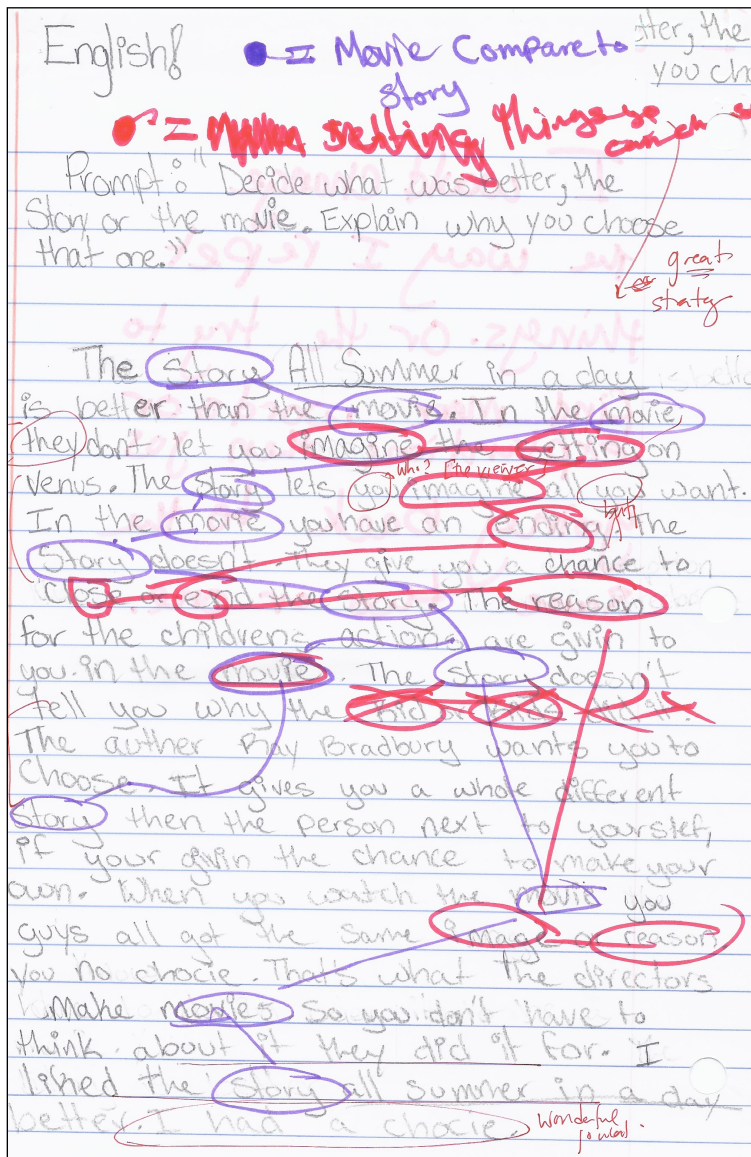 English!
= Movie Compare to
story
tter, the
you cho
= setting things you
can ch
Prompt: "Decide what was better, the
Story or the movie. Explain why you choose
that one."
great
strategy
The Story All Summer in a day
is better than the movie. In the movie
they don't let you imagine the setting on
who? [the viewer]
Venus. The story lets you imagine all you want.
In the movie you have an ending, The
but
Story doesn't. They give you a chance to
close or end the story. The reason
for the childrens actions are givin to
you in the movie. The story doesn't
Tell you why the kid or kids did it.
The auther Ray Bradbury wants you to
Choose. It gives you a whole different
story then the person next to yourslef,
if your givin the chance to make your
own. When you watch the movie you
guys all got the same image or reason
you no chocie. That's what the directors
make movies So you don't have to
think about it they did it for. I
liked the story all summer in a day
better. I had a chocie.
Wonderful